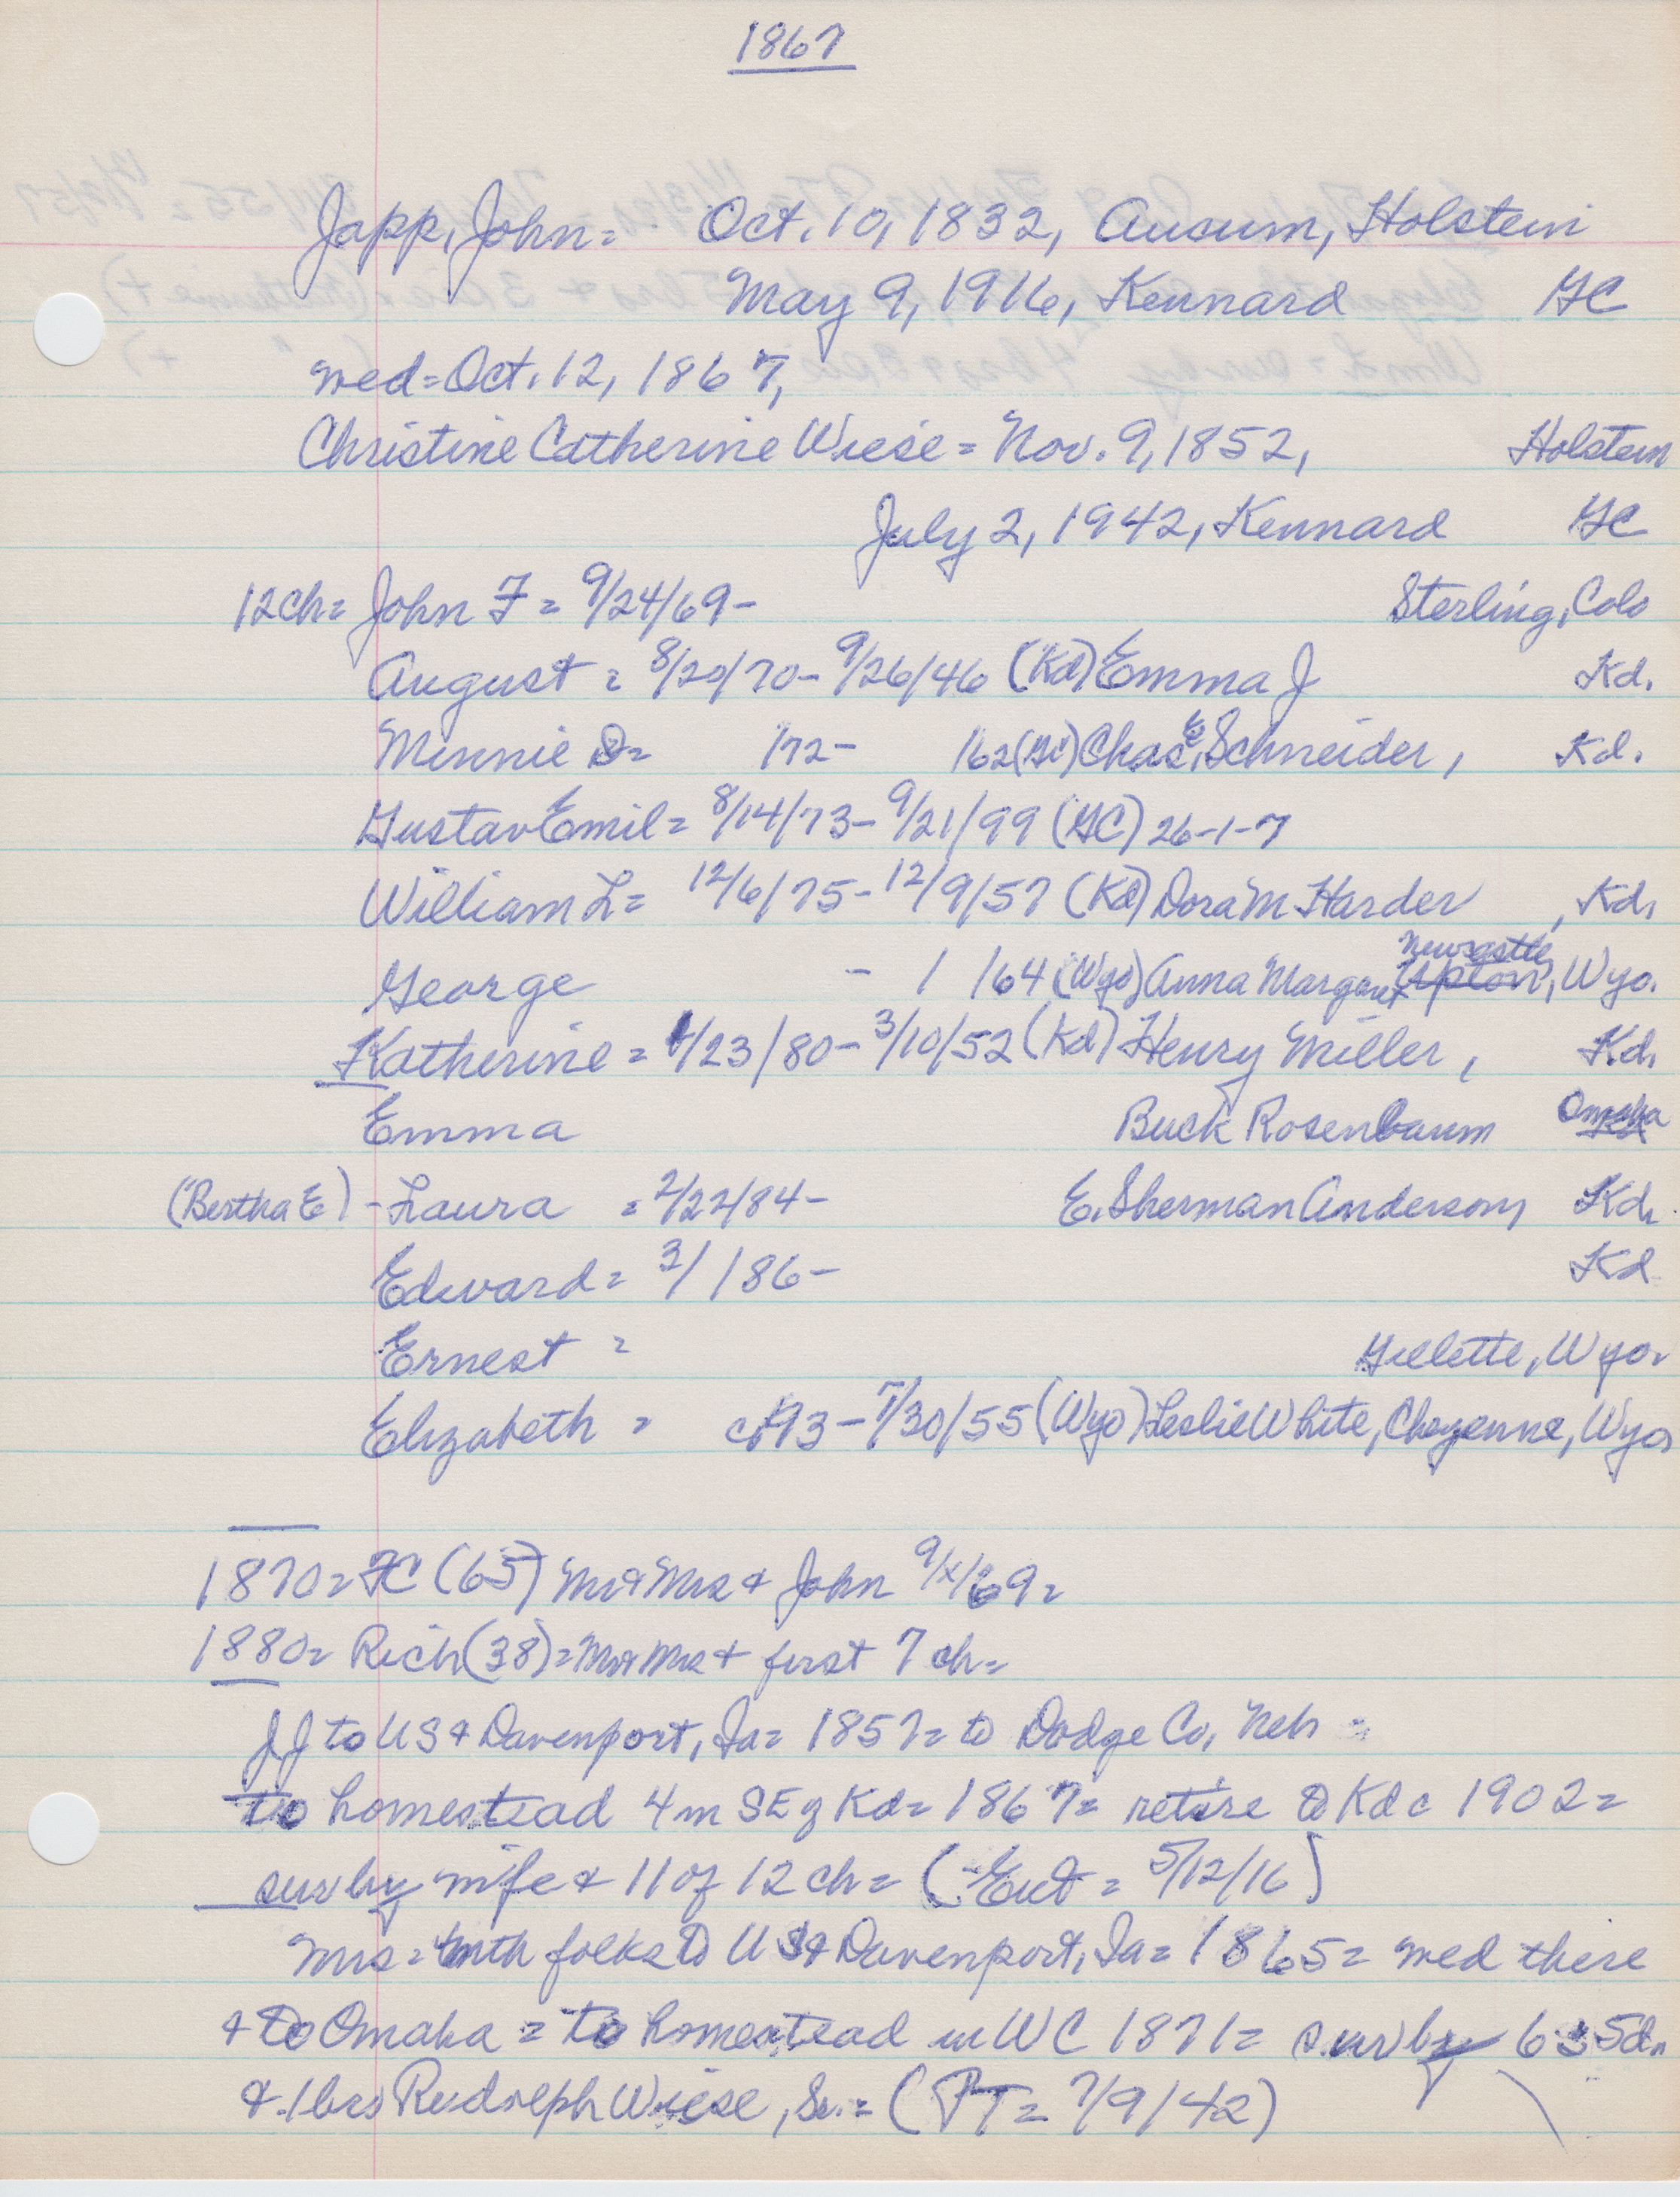 1867
Japp, John = Oct. 10, 1832, Ausum, Holstein
May 9, 1916, Kennard GC
med = Oct. 12, 1867,
Christine Catherine Wiese = Nov. 9, 1852, Holstein
July 2, 1942, Kennard GC
12ch = John F = 9/24/69 - Sterling, Colo
August = 8/20/70 - 9/26/46 (Kd) Emma J Kd.
Minnie D = /72 - /62 (GC) Chas E. Schneider, Kd.
Gustav Emil = 8/14/73 - 9/21/99 (GC) 26-1-7
William L = 12/6/75 - 12/9/57 (Kd) Dora M Harder, Kd.
George - / /64 (Wyo) Anna Margaret Newcastle Upton, Wyo.
Katherine = /23/80 - 3/10/52 (Kd) Henry Miller, Kd.
Emma Buck Rosenbaum Omaha
(Bertha E) - Laura = 2/22/84 - E. Sherman Anderson, Kd.
Edward = 3/ /86 - Kd
Ernest = Gillette, Wyo.
Elizabeth = c/93 - 7/30/55 (Wyo) Leslie White, Cheyenne, Wyo.
1870 = FC (65) Mr & Mrs & John 9/x/69 =
1880 = Rich (38) = Mr & Mrs & first 7 ch =
JJ to US & Davenport, Ia = 1857 = to Dodge Co, Neb =
to homestead 4m SE of Kd = 1867 = retire to Kd c 1902 =
sur by wife & 11 of 12 ch = (Ent = 5/12/16)
Mrs = with folks to US & Davenport, Ia = 1865 = med there
& to Omaha = to homestead in WC 1871 = sur by 6s 5d.
& 1 bro Rudolph Wiese, Sr. = (PT = 7/9/42)